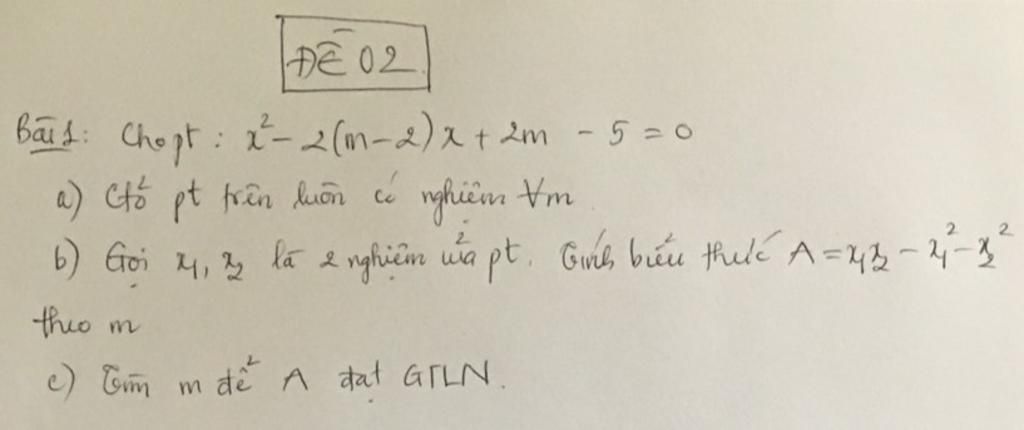 ĐỀ 02
Bài 1: Cho pt: x² - 2(m-2)x + 2m - 5 = 0
a) Ctỏ pt trên luôn có nghiệm ∀m
b) Gọi x₁, x₂ là 2 nghiệm của pt. Tính biểu thức A = x₁x₂ - x₁² - x₂²
theo m
c) Tìm m để A đạt GTLN.